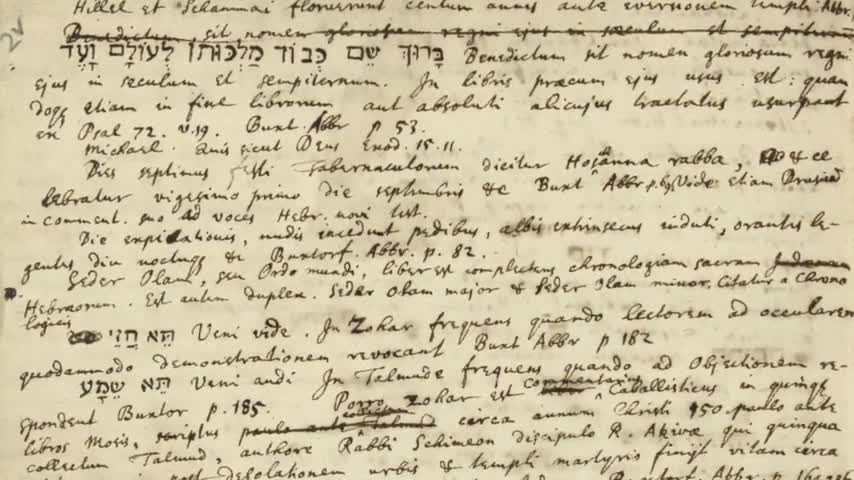 2v
Hillel et Schammai floruerunt centum annis ante eversionem templi Abbr.
Benedictum sit nomen gloriosum regni ejus in sæculum et sempiternum
בָּרוּךְ שֵׁם כְּבוֹד מַלְכוּתוֹ לְעוֹלָם וָעֶד Benedictum sit nomen gloriosum regni
ejus in sæculum et sempiternum. In libris præcum ejus usus est: quan
doqꝫ etiam in fine librorum aut absoluti alicujus tractatus usurpant
ex Psal 72. v.19. Buxt. Abbr p 53.
Michael. Quis sicut Deus Exod. 15. 11.
Dies septimus festi Tabernaculorum dicitur Hosanna rabba, & ce
lebratur vigesimo primo die septembris &c Buxt Abbr. p. Vide etiam Drusium
in comment. suo ad voces Hebr. novi test.
Die expiationis, nudis incedunt pedibus, albis extrinsecus induti, orantes le-
gentes diu noctuqꝫ &c Buxtorf. Abbr. p. 82.
Seder Olam, seu Ordo mundi, liber est complectens chronologiam sacram
Hebræorum. Est autem duplex. Seder Olam major & Seder Olam minor. Citatur a Chrono
logicis
תָּא חֲזֵי Veni vide. In Zohar frequens quando lectorem ad ocularem
quodammodo demonstrationem revocant Buxt Abbr p 182
תָּא שְׁמַע Veni audi In Talmude frequens quando ad Objectionem re-
spondent Buxtor p. 185. Porro Zohar est commentarius Caballisticus in quinqꝫ
libros Mosis, scriptus paulo ante Talmud circa annum Christi 150 paulo ante
collectum Talmud, authore Rabbi Schimeon discipulo R. Akivæ qui quinqua
desolationem urbis & templi martyris finijt vitam circa
Buxtorf. Abbr. p.